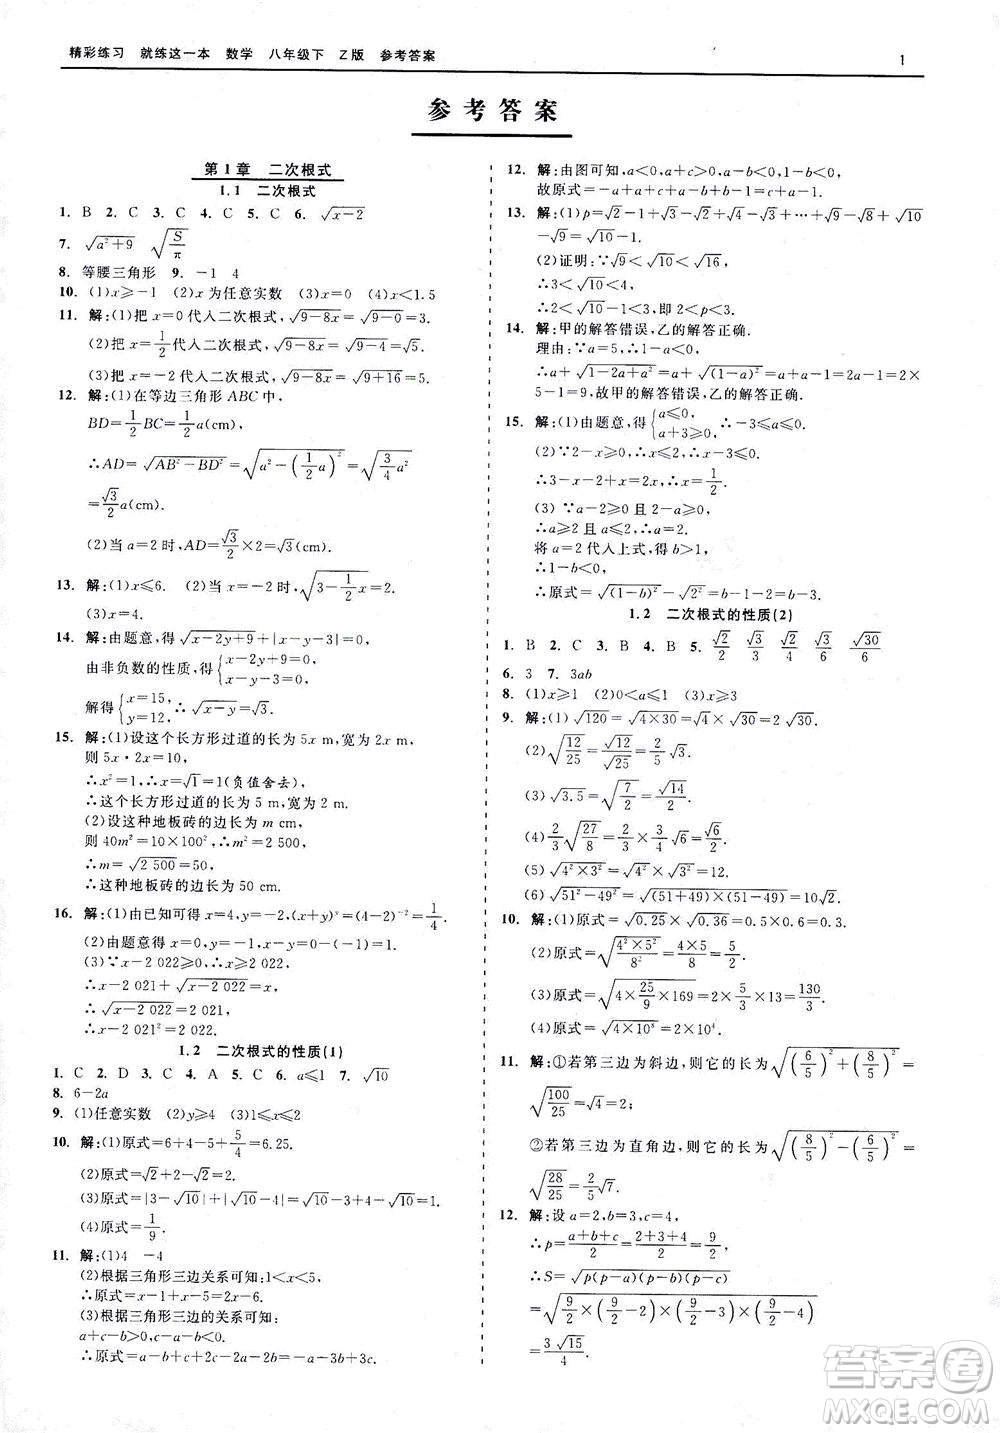 精彩练习 就练这一本 数学 八年级下 Z版 参考答案 1
参考答案
第1章 二次根式
1.1 二次根式
1. B 2. C 3. C 4. C 5. C 6. √(x−2)
7. √(a²+9) √(S/π)
8. 等腰三角形 9. −1 4
10. (1)x≥−1 (2)x为任意实数 (3)x=0 (4)x<1.5
11. 解:(1)把x=0代入二次根式,√(9−8x)=√(9−0)=3.
(2)把x=1/2代入二次根式,√(9−8x)=√(9−4)=√5.
(3)把x=−2代入二次根式,√(9−8x)=√(9+16)=5.
12. 解:(1)在等边三角形ABC中,
BD=1/2BC=1/2a(cm),
∴AD=√(AB²−BD²)=√(a²−(1/2a)²)=√(3/4a²)
=√3/2a(cm).
(2)当a=2时,AD=√3/2×2=√3(cm).
13. 解:(1)x≤6. (2)当x=−2时,√(3−1/2x)=2.
(3)x=4.
14. 解:由题意,得√(x−2y+9)+|x−y−3|=0.
由非负数的性质,得{x−2y+9=0, x−y−3=0.
解得{x=15, y=12,∴√(x−y)=√3.
15. 解:(1)设这个长方形过道的长为5x m,宽为2x m,
则5x·2x=10,
∴x²=1,∴x=√1=1(负值舍去),
∴这个长方形过道的长为5 m,宽为2 m.
(2)设这种地板砖的边长为m cm,
则40m²=10×100²,∴m²=2 500,
∴m=√(2 500)=50.
∴这种地板砖的边长为50 cm.
16. 解:(1)由已知可得x=4,y=−2,(x+y)ʸ=(4−2)⁻²=1/4.
(2)由题意得x=0,y=1,∴原式=1.
(3)∵x−2 022≥0,∴x≥2 022,
∴x−2 021+√(x−2 022)=x,
∴√(x−2 022)=2 021,
∴x−2 021²=2 022.
1.2 二次根式的性质(1)
1. C 2. D 3. C 4. A 5. C 6. a≤1 7. √10
8. 6−2a
9. (1)任意实数 (2)y≥4 (3)1≤x≤2
10. 解:(1)原式=6+4−5+5/4=6.25.
(2)原式=√2+2−2=√2.
(3)原式=|3−√10|+|√10−4|=√10−3+4−√10=1.
(4)原式=1/9.
11. 解:(1)4 −4
(2)根据三角形三边关系可知:1<x<5,
∴原式=4.
(3)根据三角形三边关系可知:
a+c−b>0,c−a−b<0,
∴原式=a−b+c−a−b+c+2b=2c.
12. 解:由图可知,a<0,a+c>0,c−a>0,1−b<0,
故原式=−a+a+c+c−a−1+b=2c−a+b−1.
13. 解:(1)p=√2−1+√3−√2+√4−√3+…+√9−√8+√10
−√9=√10−1.
(2)证明:∵√9<√10<√16,
∴3<√10<4,
∴2<√10−1<3,即2<p<3.
14. 解:甲的解答错误,乙的解答正确.
理由:∵a=5,∴1−a<0.
∴a+√(1−2a+a²)=a+√((1−a)²)=a+a−1=2a−1=2×
5−1=9,故甲的解答错误,乙的解答正确.
15. 解:(1)由题意,得{a≤0, a+3≥0,∴−3≤a≤0.
(2)∵2−x≥0,∴x≤2.
∴3−x−2+x=x,∴x=1/2.
(3)∵a−2≥0且2−a≥0,
∴a≥2且a≤2,∴a=2.
将a=2代入上式,得b>1,
∴1−b<0,
∴原式=√((1−b)²)−a=b−1−2=b−3.
1.2 二次根式的性质(2)
1. B 2. C 3. B 4. B 5. √2/2 √3/3 √3/4 √30/6
6. 3 7. 3ab
8. (1)x≥1 (2)0<a≤1 (3)x≥3
9. 解:(1)√120=√(4×30)=√4×√30=2√30.
(2)√(12/25)=√12/√25=2/5√3.
(3)√3.5=√(7/2)=√14/2.
(4)2/3√(27/8)=2/3×3/4√6=√6/2.
(5)√(4²×3²)=√4²×√3²=12.
(6)√(51²−49²)=√((51+49)×(51−49))=10√2.
10. 解:(1)原式=√0.25×√0.36=0.5×0.6=0.3.
(2)原式=√(4²×5²/8²)=4×5/8=5/2.
(3)原式=√(4×25/9×169)=2×5/3×13=130/3.
(4)原式=√(4×10⁸)=2×10⁴.
11. 解:①若第三边为斜边,则它的长为√((6/5)²+(8/5)²)=
√(100/25)=2;
②若第三边为直角边,则它的长为√((8/5)²−(6/5)²)=
√(28/25)=2/5√7.
12. 解:设a=2,b=3,c=4,
∴p=(a+b+c)/2=(2+3+4)/2=9/2,
∴S=√(p(p−a)(p−b)(p−c))
=√(9/2×(9/2−2)×(9/2−3)×(9/2−4))
=3√15/4.
答案圈
MXQE.COM